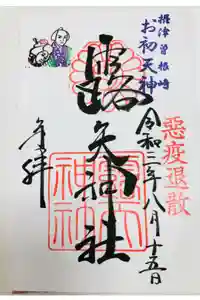 摂津曽根崎
お初天神
惡疫退散
令和二年八月十五日
露天神社
奉拝